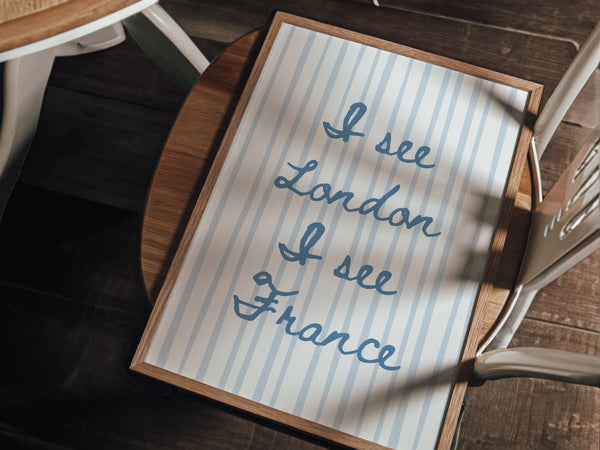 I see
London
I see
France